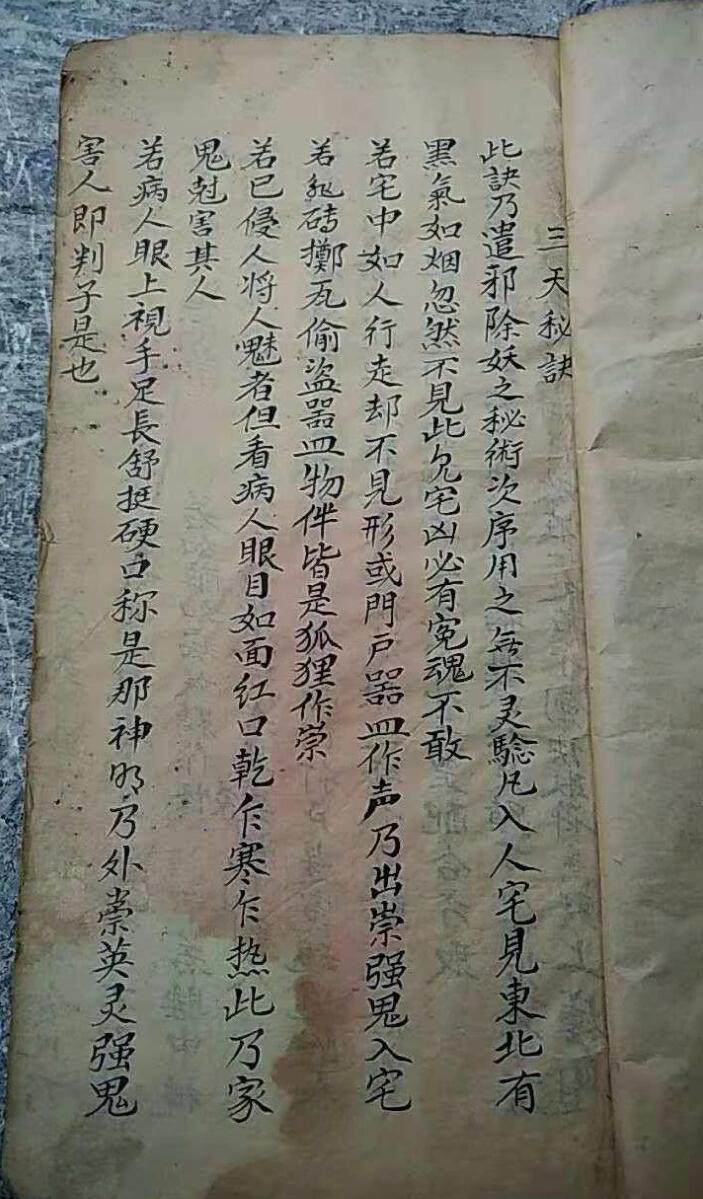 三天秘訣
此訣乃遣邪除妖之秘術次序用之無不灵驗凡入人宅見東北有
黑氣如烟忽然不見此宅凶必有寃魂不敢
若宅中如人行走却不見形或門戶器皿作声乃出祟强鬼入宅
若磚擲瓦偷盜器皿物件皆是狐狸作祟
若已侵人将人魅者但看病人眼目如面红口乾乍寒乍热此乃家
鬼尅害其人
若病人眼上視手足長舒挺硬口称是那神明乃外祟英灵强鬼
害人即判子是也